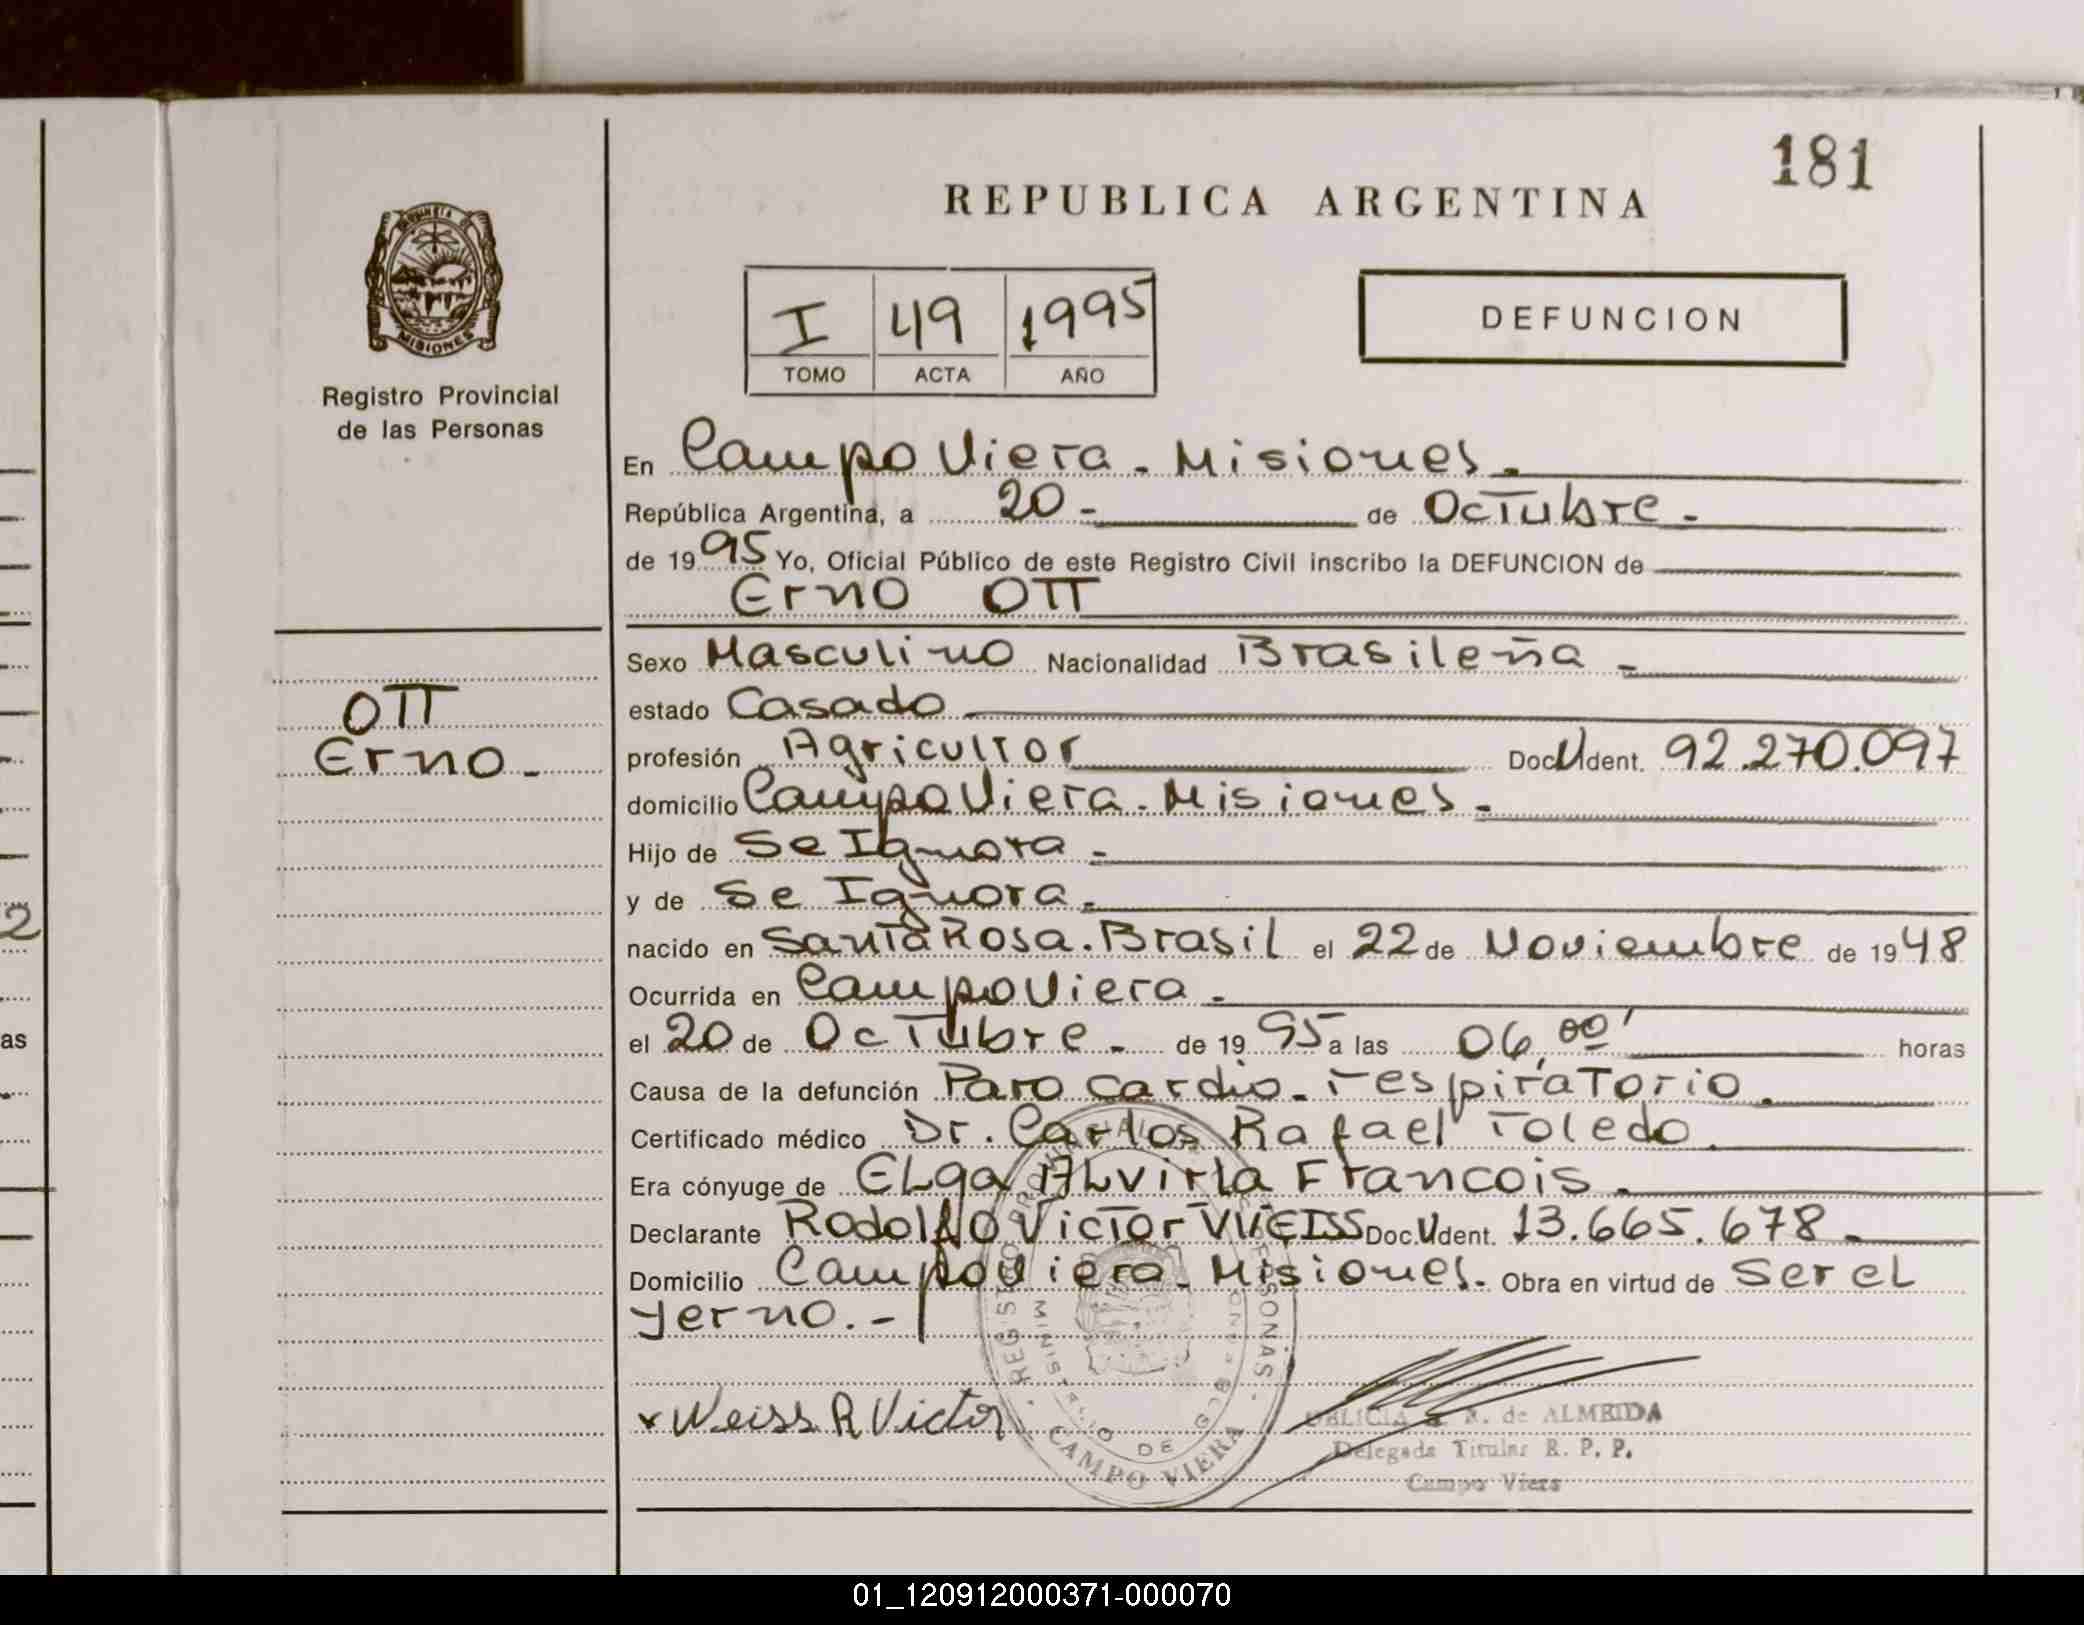 181
REPUBLICA ARGENTINA
PROVINCIA DE
MISIONES
Registro Provincial
de las Personas
I 49 1995
TOMO ACTA AÑO
DEFUNCION
En Campo Viera - Misiones.
República Argentina, a 20 - de Octubre -
de 1995 Yo, Oficial Público de este Registro Civil inscribo la DEFUNCION de
Erno OTT
Sexo Masculino Nacionalidad Brasileña -
OTT
Erno -
estado Casado
profesión Agricultor Doc. Ident. 92.270.097
domicilio Campo Viera - Misiones -
Hijo de Se Ignora -
y de Se Ignora -
nacido en Santa Rosa. Brasil el 22 de Noviembre de 1948
Ocurrida en Campo Viera -
el 20 de Octubre - de 1995 a las 06,00' horas
Causa de la defunción Paro cardio-respiratorio.
Certificado médico Dr. Carlos Rafael Toledo.
Era cónyuge de ELga ALvirla Francois.
Declarante Rodolfo Victor WEISS Doc. Ident. 13.665.678 -
Domicilio Campo Viera - Misiones. Obra en virtud de Ser eL
yerno. -
x Weiss R Victor
REGISTRO PROVINCIAL DE LAS PERSONAS
MINISTERIO DE GOB
CAMPO VIERA
de ALMEIDA
Delegada Titular R. P. P.
Campo Viera
2
as
01_120912000371-000070